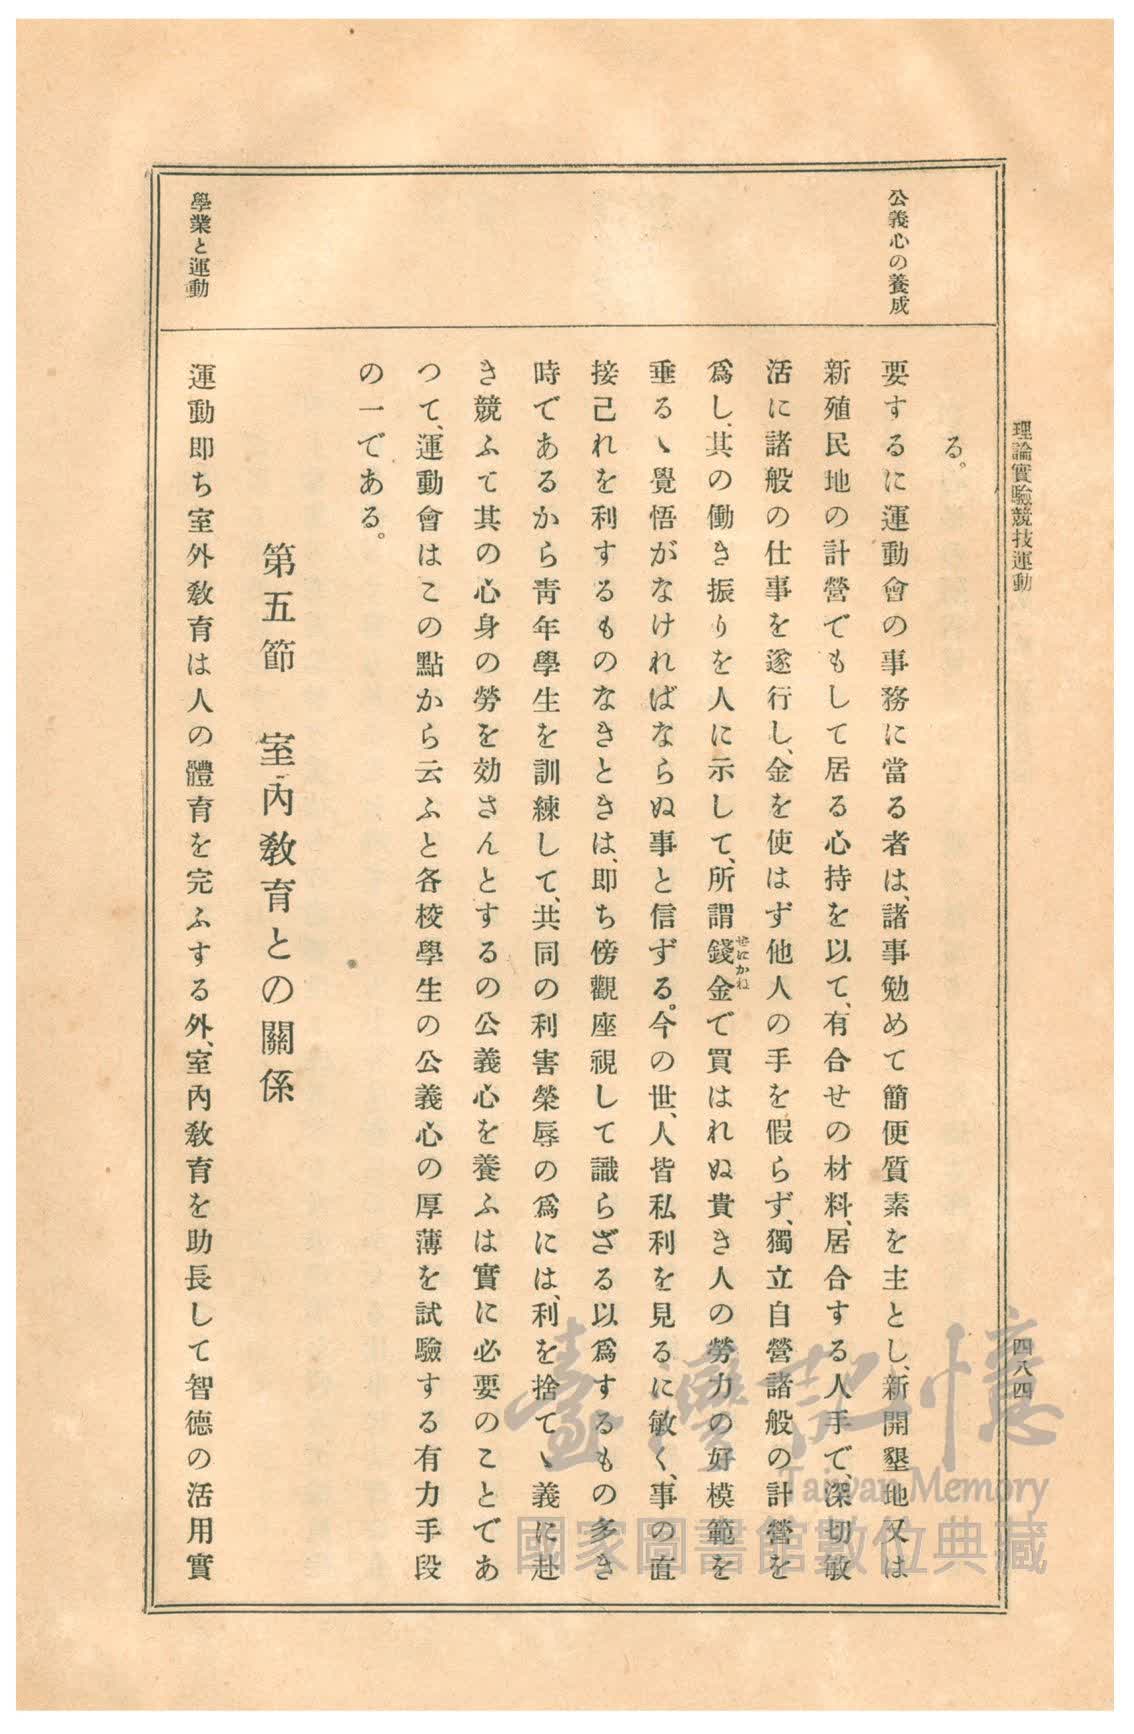 理論實驗競技運動
四八四
公義心の養成
る。
要するに運動會の事務に當る者は、諸事勉めて簡便質素を主とし、新開墾地又は
新殖民地の計營でもして居る心持を以て、有合せの材料、居合する人手で、深切敏
活に諸般の仕事を遂行し、金を使はず他人の手を假らず、獨立自營諸般の計營を
爲し、其の働き振りを人に示して、所謂錢金で買はれぬ貴き人の勞力の好模範を
せにかね
垂るゝ覺悟がなければならぬ事と信ずる。今の世、人皆私利を見るに敏く、事の直
接己れを利するものなきときは、即ち傍觀座視して識らざる以爲するもの多き
時であるから靑年學生を訓練して、共同の利害榮辱の爲には、利を捨てゝ義に赴
き競ふて其の心身の勞を効さんとするの公義心を養ふは實に必要のことであ
つて、運動會はこの點から云ふと各校學生の公義心の厚薄を試驗する有力手段
の一である。
第五節　室內敎育との關係
學業と運動
運動即ち室外敎育は人の體育を完ふする外、室內敎育を助長して智德の活用實
臺灣記憶
Taiwan Memory
國家圖書館數位典藏